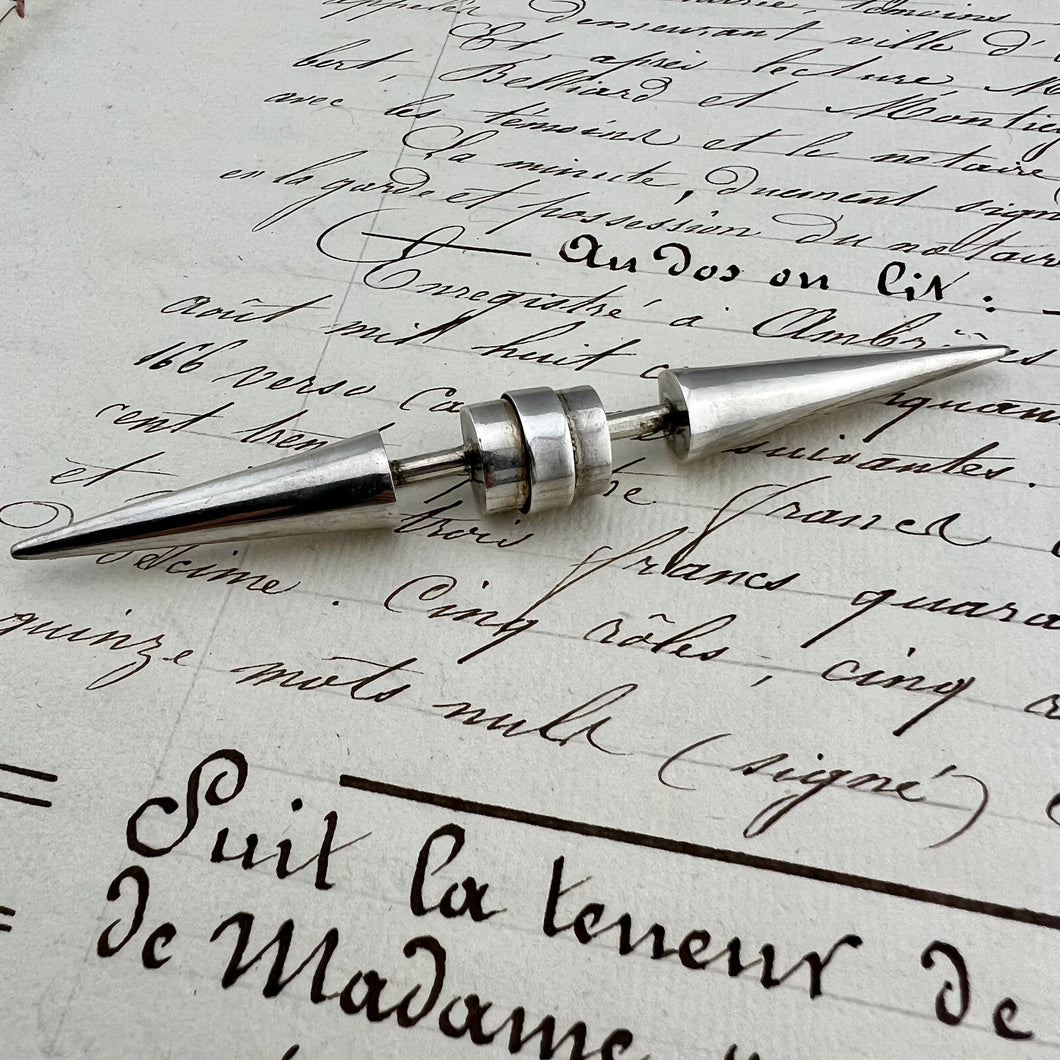 demeurant ville d'
Et après lecture, M
bert, Belliard et Montig
avec les témoins et le notaire
La minute, dûement sign
en la garde et possession du notaire
Au dos on lit :
Enregistré à Ambr
août mil huit
166 verso ca
cent tren quan
et suivantes.
trois franc
Décime . Cinq francs quara
quinze mots nuls rôles, cinq
(signé)
Suit la teneur de
de Madame